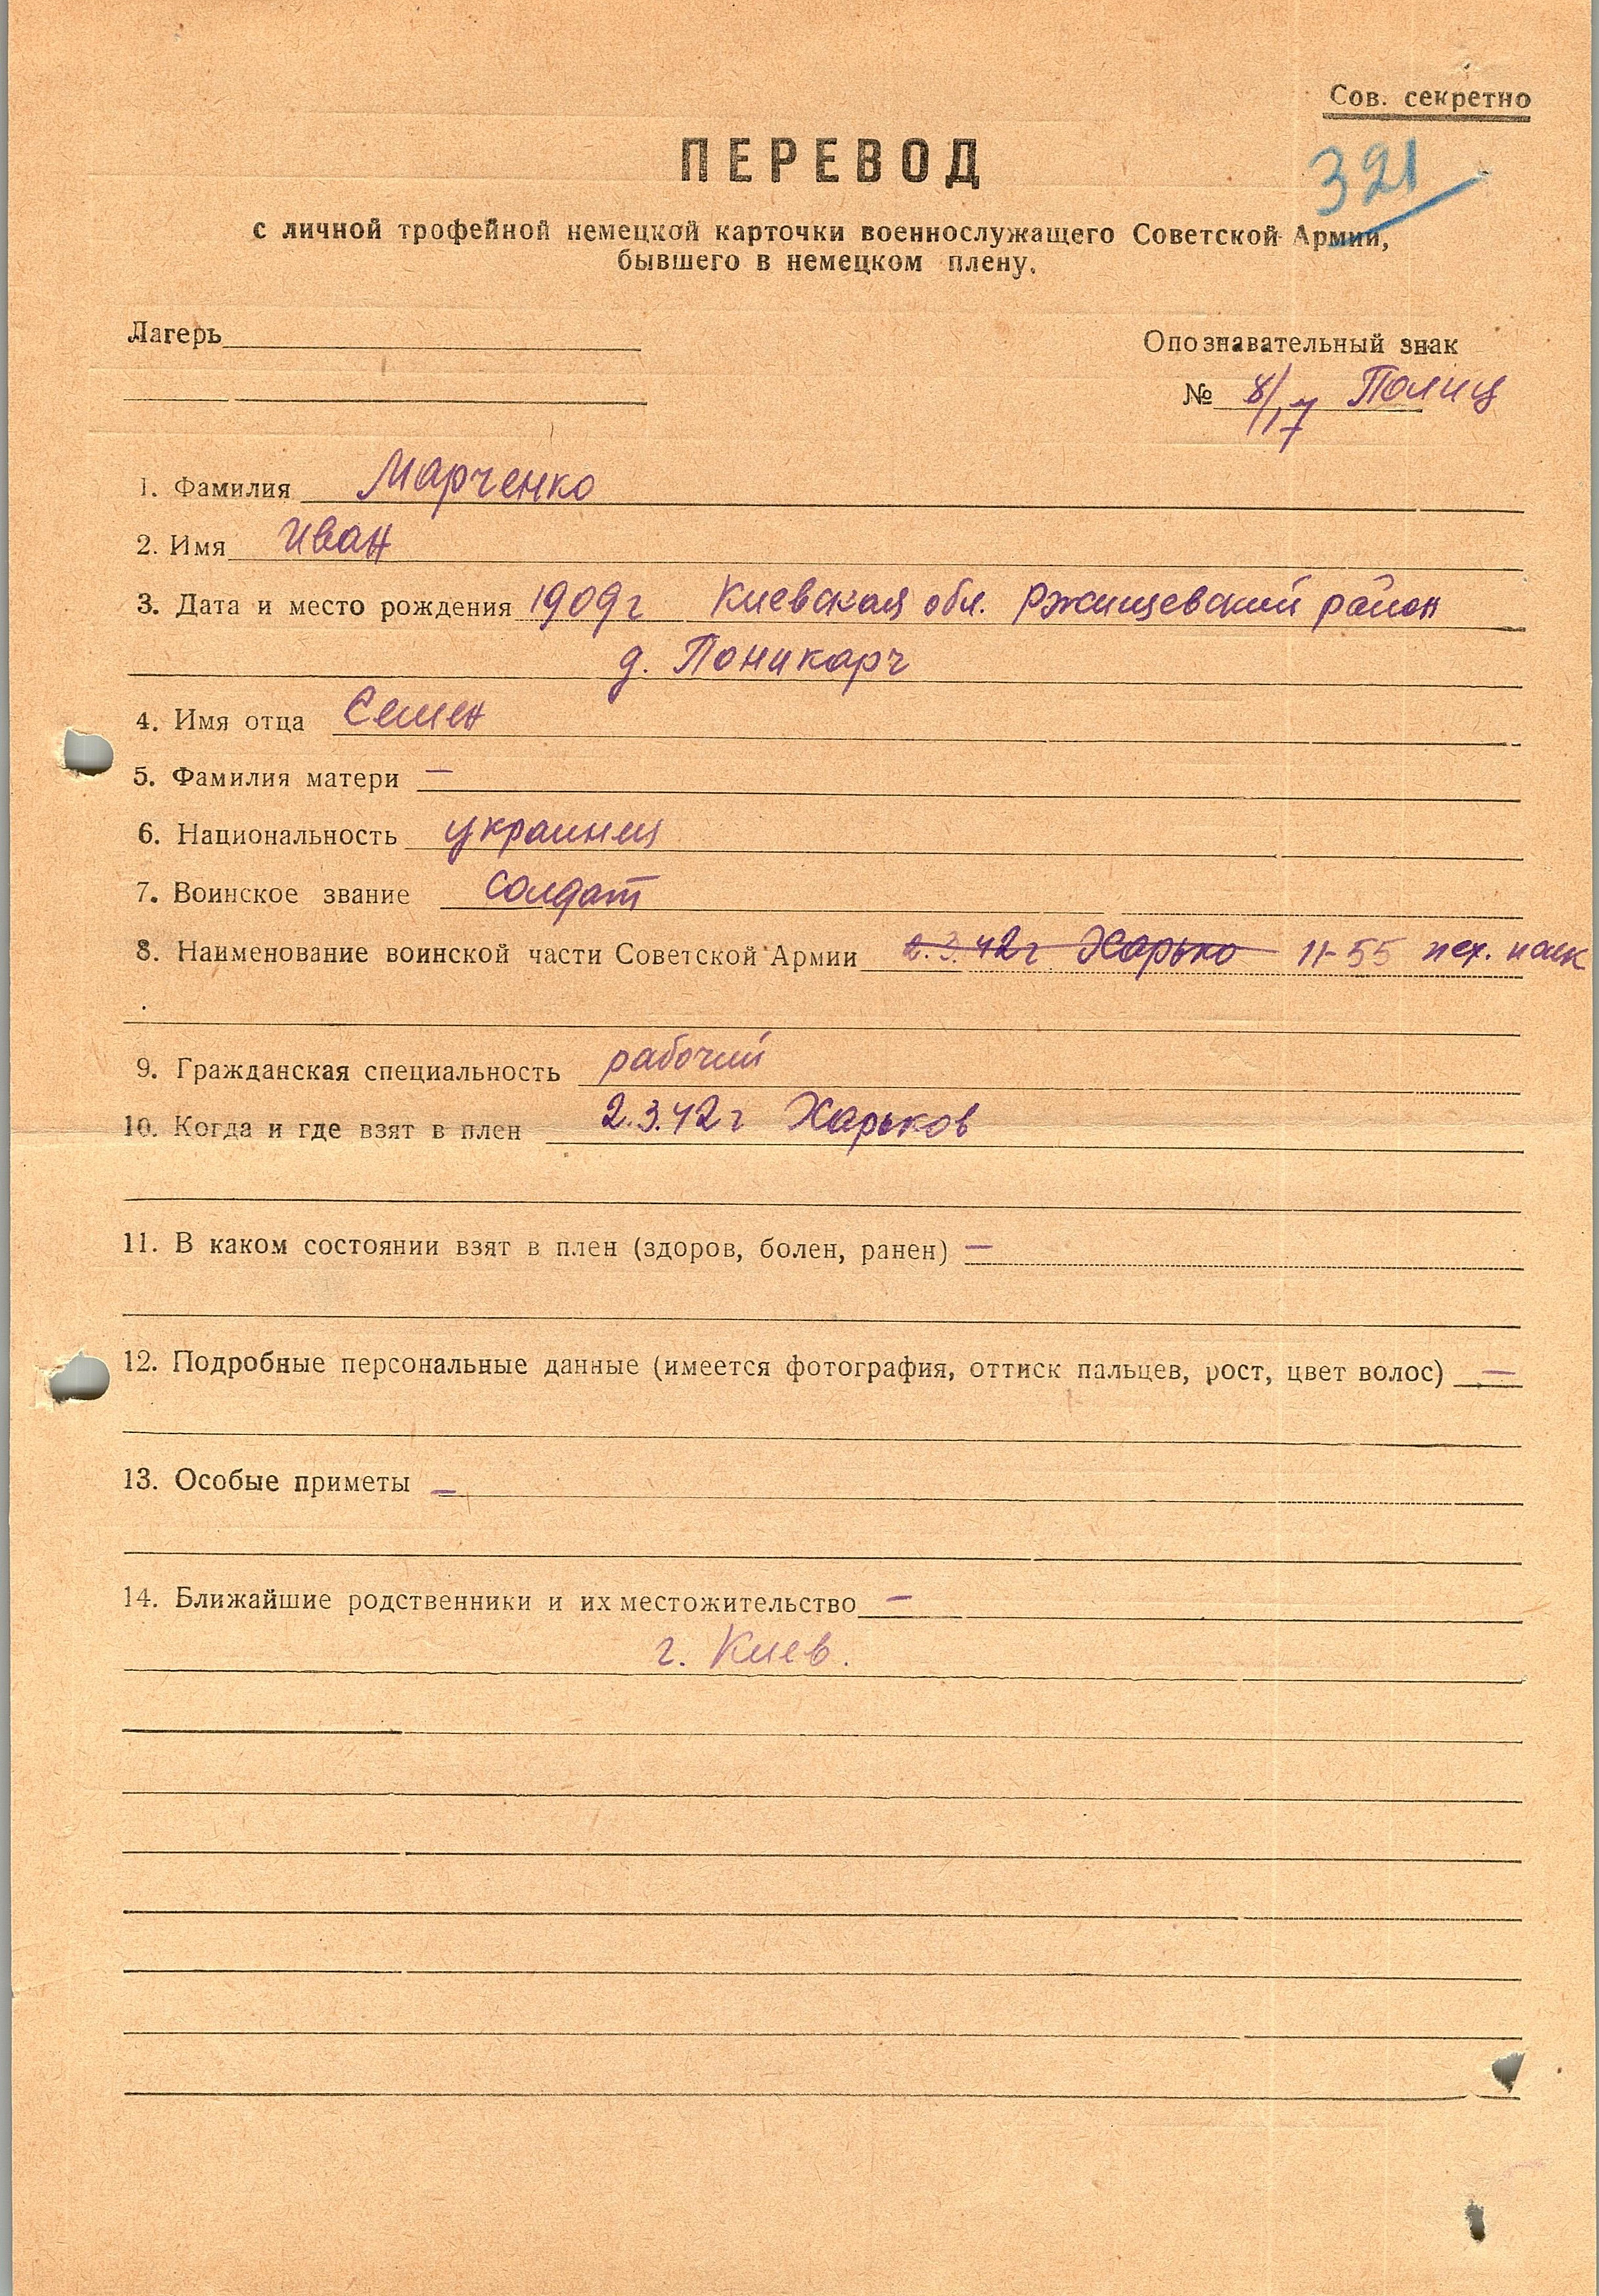 Сов. секретно
ПЕРЕВОД
321
с личной трофейной немецкой карточки военнослужащего Советской Армии,
бывшего в немецком плену.
Лагерь
Опознавательный знак
№ 8/17 Полиц
1. Фамилия Марченко
2. Имя Иван
3. Дата и место рождения 1909г Киевская обл. Ржищевский район
д. Поникарч
4. Имя отца Семен
5. Фамилия матери —
6. Национальность украинец
7. Воинское звание солдат
8. Наименование воинской части Советской Армии 2.3.42г Харько 11-55 пех. полк
9. Гражданская специальность рабочий
10. Когда и где взят в плен 2.3.42г Харьков
11. В каком состоянии взят в плен (здоров, болен, ранен) —
12. Подробные персональные данные (имеется фотография, оттиск пальцев, рост, цвет волос) —
13. Особые приметы —
14. Ближайшие родственники и их местожительство —
г. Киев.